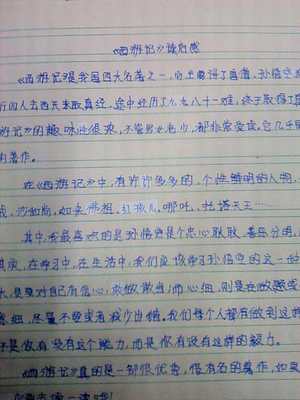 《西游记》读后感
《西游记》是我国四大名著之一,向主要写了唐僧、孙悟空
行四人去西天求取真经,途中经历了九九八十一难,终于取得了
游记》的趣味性很浓,不管男女老少,都非常爱读,它几乎
的著作。
在《西游记》中,有许许多多的,个性鲜明的人物,
戒,沙和尚,如来佛祖,红孩儿,哪吒,托塔天王…
其中,我最喜欢的是孙悟空是个忠心耿耿、善恶分明,
其实,在学习中,在生活中,我们应该学习孙悟空的这一
是要对自己有信心,敢做敢当,而心细,则是在做题
细,尽量不要或者减少出错。我们每个人都有做到这样
不是你有没有这个能力,而是你有没有这样的毅力。
《西游记》真的是一部很优秀,很有名的著作,如